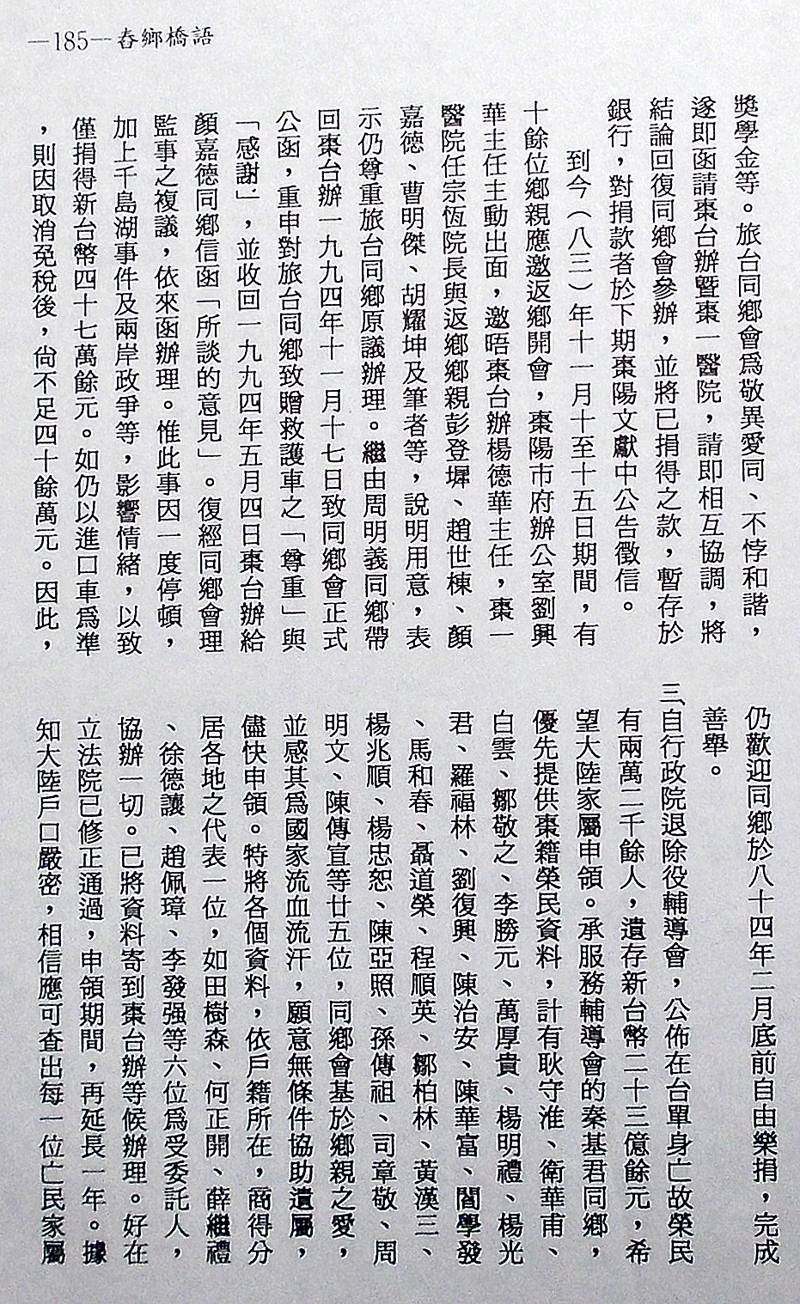 —185— 舂鄉橋語
獎學金等。旅台同鄉會爲敬異愛同、不悖和諧，
遂即函請棗台辦暨棗一醫院，請即相互協調，將
結論回復同鄉會參辦，並將已捐得之款，暫存於
銀行，對捐款者於下期棗陽文獻中公告徵信。
到今（八三）年十一月十至十五日期間，有
十餘位鄉親應邀返鄉開會，棗陽市府辦公室劉興
華主任主動出面，邀晤棗台辦楊德華主任，棗一
醫院任宗恆院長與返鄉鄉親彭登墀、趙世棟、顏
嘉德、曹明傑、胡耀坤及筆者等，說明用意，表
示仍尊重旅台同鄉原議辦理。繼由周明義同鄉帶
回棗台辦一九九四年十一月十七日致同鄉會正式
公函，重申對旅台同鄉致贈救護車之「尊重」與
「感謝」，並收回一九九四年五月四日棗台辦給
顏嘉德同鄉信函「所談的意見」。復經同鄉會理
監事之複議，依來函辦理。惟此事因一度停頓，
加上千島湖事件及兩岸政爭等，影響情緒，以致
僅捐得新台幣四十七萬餘元。如仍以進口車爲準
，則因取消免稅後，尙不足四十餘萬元。因此，
仍歡迎同鄉於八十四年二月底前自由樂捐，完成
善舉。
三、自行政院退除役輔導會，公佈在台單身亡故榮民
有兩萬二千餘人，遺存新台幣二十三億餘元，希
望大陸家屬申領。承服務輔導會的秦基君同鄉，
優先提供棗籍榮民資料，計有耿守淮、衛華甫、
白雲、鄒敬之、李勝元、萬厚貴、楊明禮、楊光
君、羅福林、劉復興、陳治安、陳華富、閻學發
、馬和春、聶道榮、程順英、鄒柏林、黃漢三、
楊兆順、楊忠恕、陳亞照、孫傳祖、司章敬、周
明文、陳傳宣等廿五位，同鄉會基於鄉親之愛，
並感其爲國家流血流汗，願意無條件協助遺屬，
儘快申領。特將各個資料，依戶籍所在，商得分
居各地之代表一位，如田樹森、何正開、薛繼禮
、徐德讓、趙佩璋、李發强等六位爲受委託人，
協辦一切。已將資料寄到棗台辦等候辦理。好在
立法院已修正通過，申領期間，再延長一年。據
知大陸戶口嚴密，相信應可查出每一位亡民家屬